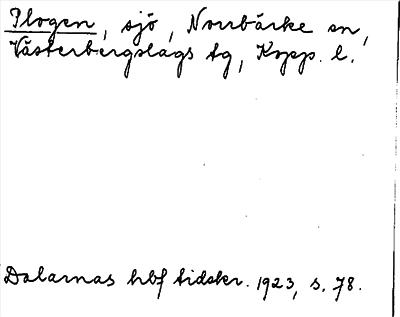 Plogen, sjö, Norrbärke sn,
Västerbergslags tg, Kopp. l.
Dalarnas hbf tidskr. 1923, s. 78.